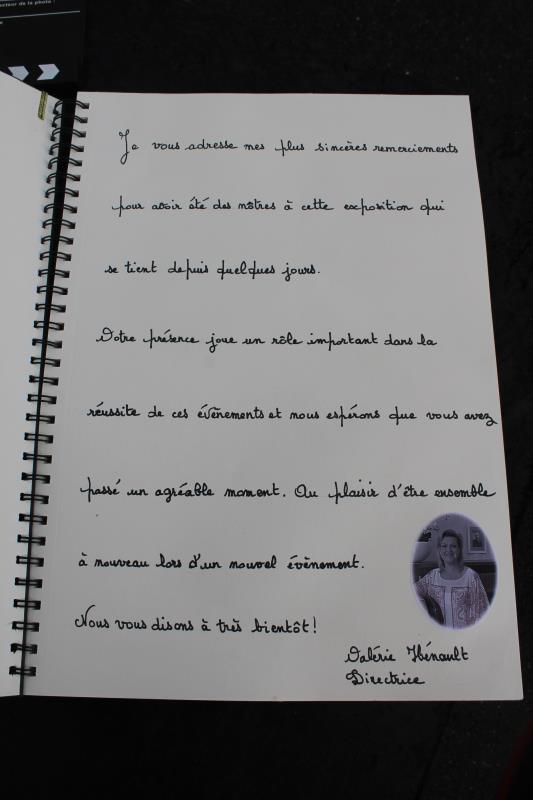 cteur de la photo :
Je vous adresse mes plus sincères remerciements
pour avoir été des nôtres à cette exposition qui
se tient depuis quelques jours.
Votre présence joue un rôle important dans la
réussite de ces évènements et nous espérons que vous avez
passé un agréable moment. Au plaisir d'être ensemble
à nouveau lors d'un nouvel évènement.
Nous vous disons à très bientôt !
Valérie Hénault
Directrice